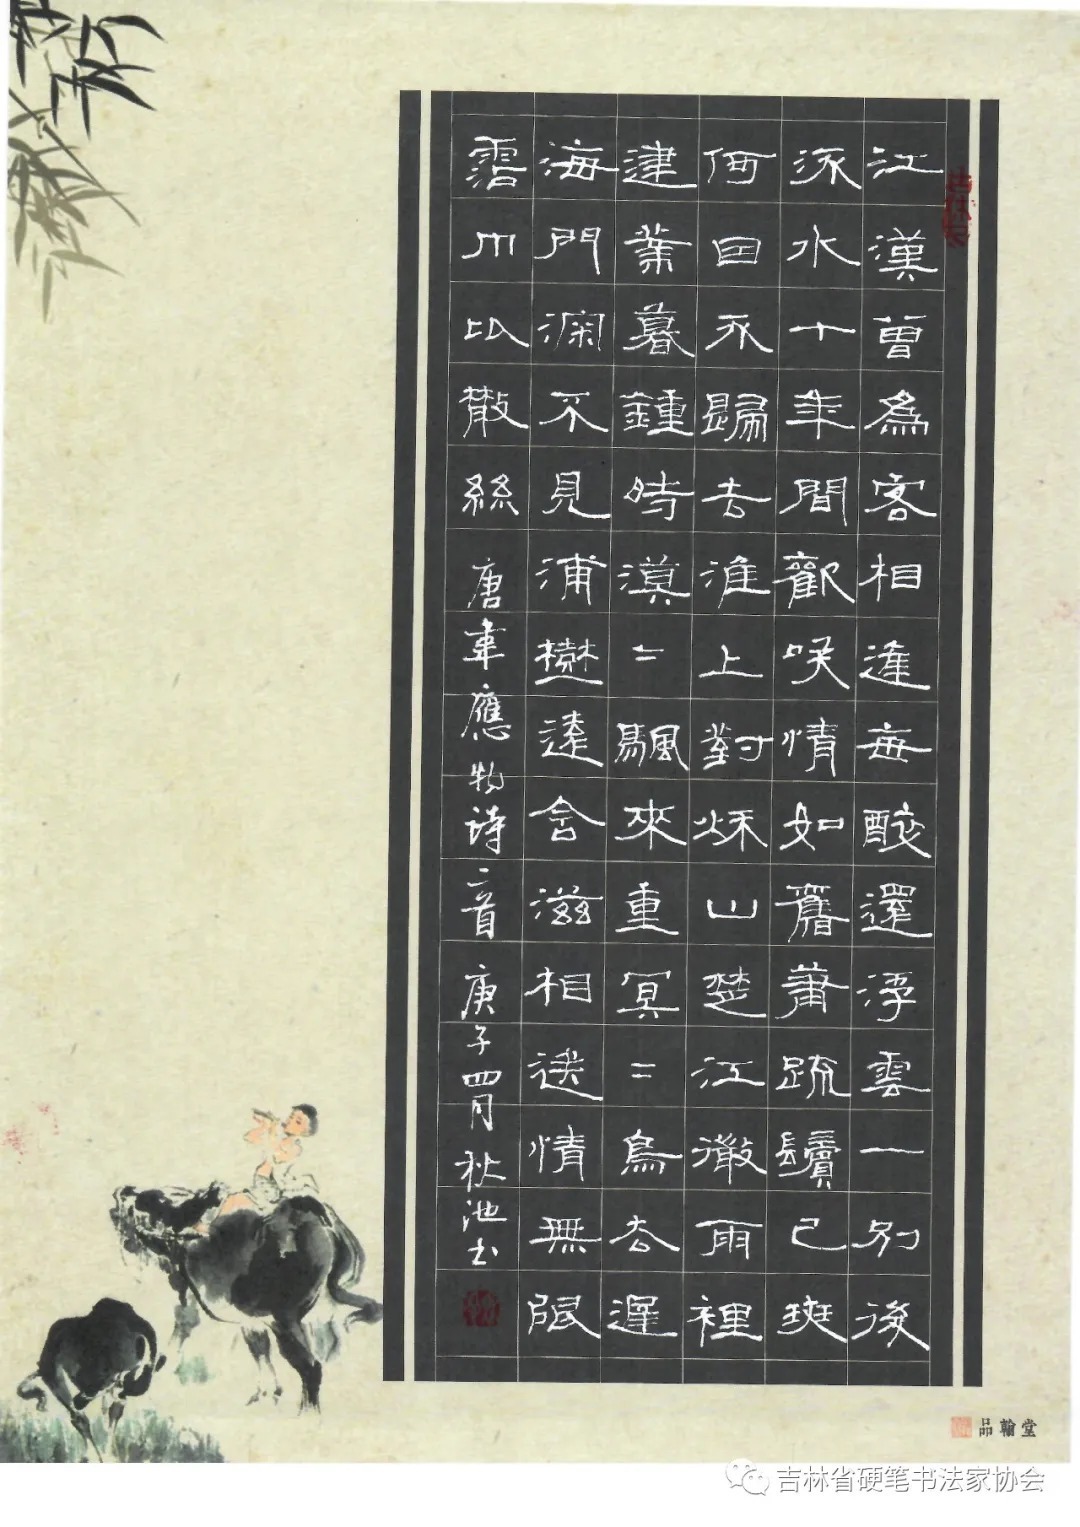 江漢曽為客相逢每醉還浮雲一别後
流水十年間歡咲情如舊蕭疏鬢已斑
何因不歸去淮上對秋山楚江微雨裡
建業暮鍾時漠=颿來重冥=鳥去遲
海門深不見浦樹遠含滋相送情無限
霑巾比散絲 唐韋應物詩二首 庚子四月 秋池书
品翰堂
吉林省硬笔书法家协会